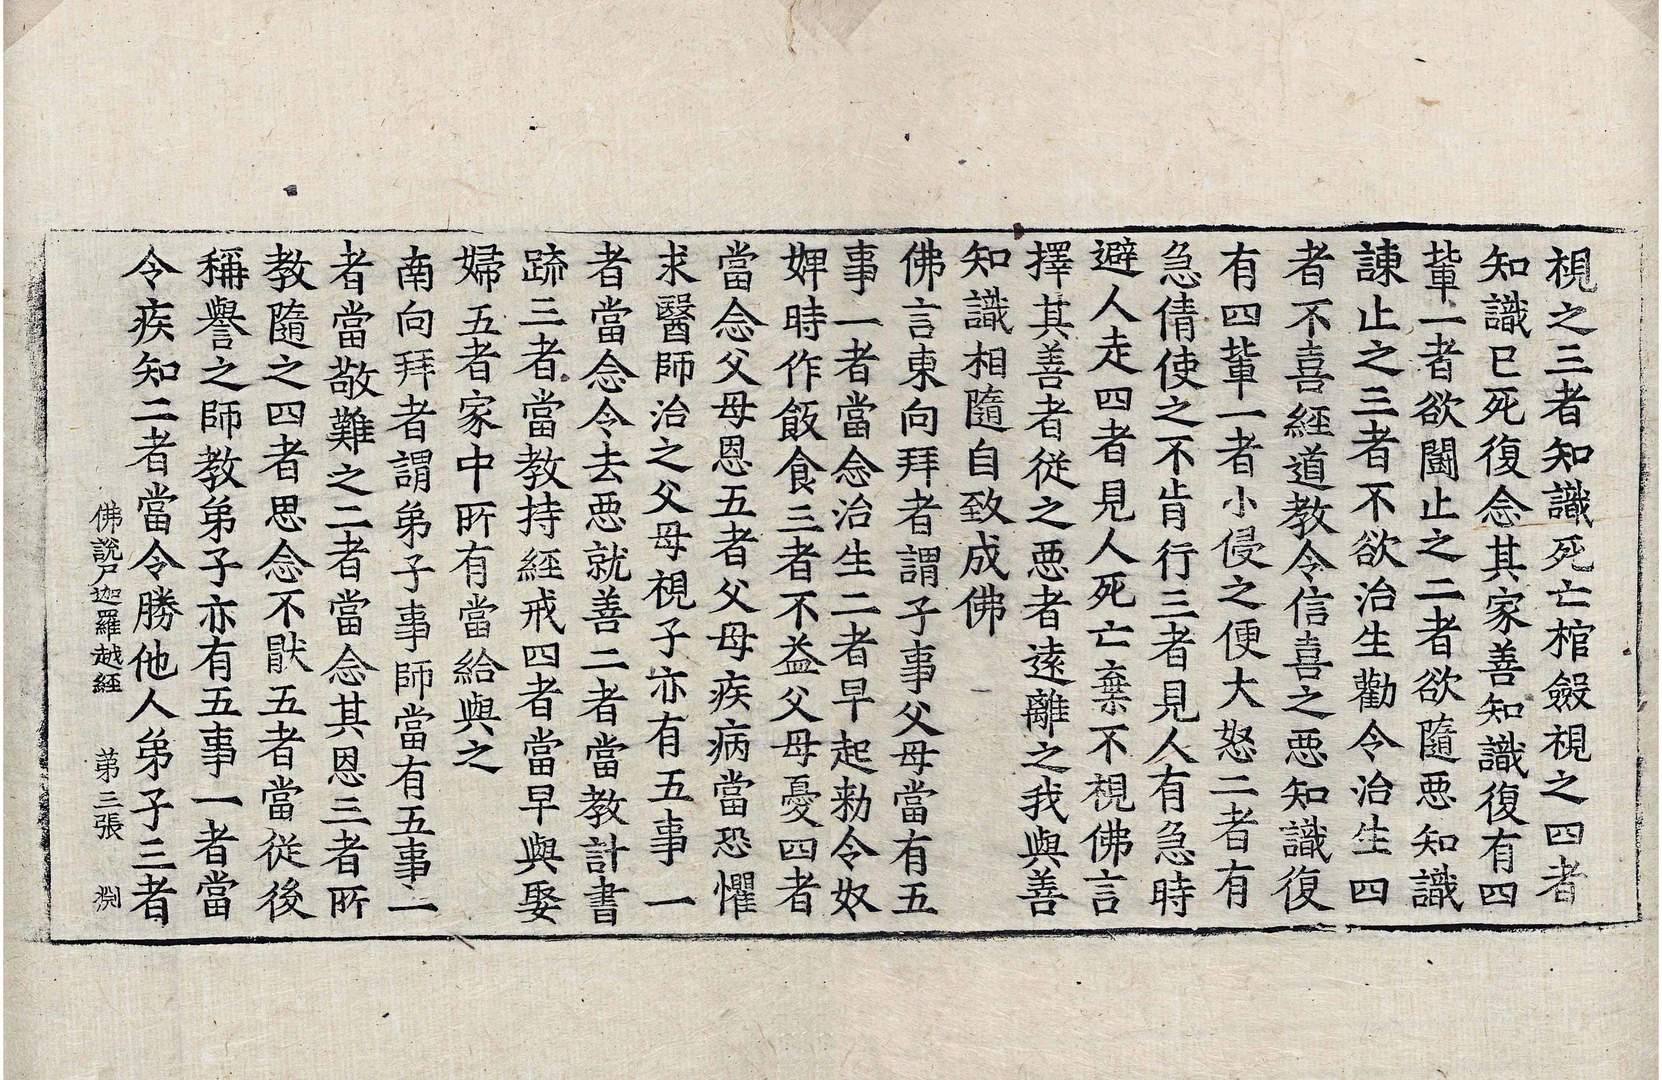 視之三者知識死亡棺斂視之四者
知識已死復念其家善知識復有四
軰一者欲鬪止之二者欲隨惡知識
諫止之三者不欲治生勸令治生四
者不喜經道教令信喜之惡知識復
有四軰一者小侵之便大怒二者有
急倩使之不肯行三者見人有急時
避人走四者見人死亡棄不視佛言
擇其善者從之惡者遠離之我與善
知識相隨自致成佛
佛言東向拜者謂子事父母當有五
事一者當念治生二者早起勑令奴
婢時作飯食三者不益父母憂四者
當念父母恩五者父母疾病當恐懼
求醫師治之父母視子亦有五事一
者當念令去惡就善二者當教計書
䟽三者當教持經戒四者當早與娶
婦五者家中所有當給與之
南向拜者謂弟子事師當有五事一
者當敬難之二者當念其恩三者所
教隨之四者思念不厭五者當從後
稱譽之師教弟子亦有五事一者當
令疾知二者當令勝他人弟子三者
佛說尸迦羅越經 苐三張 淵